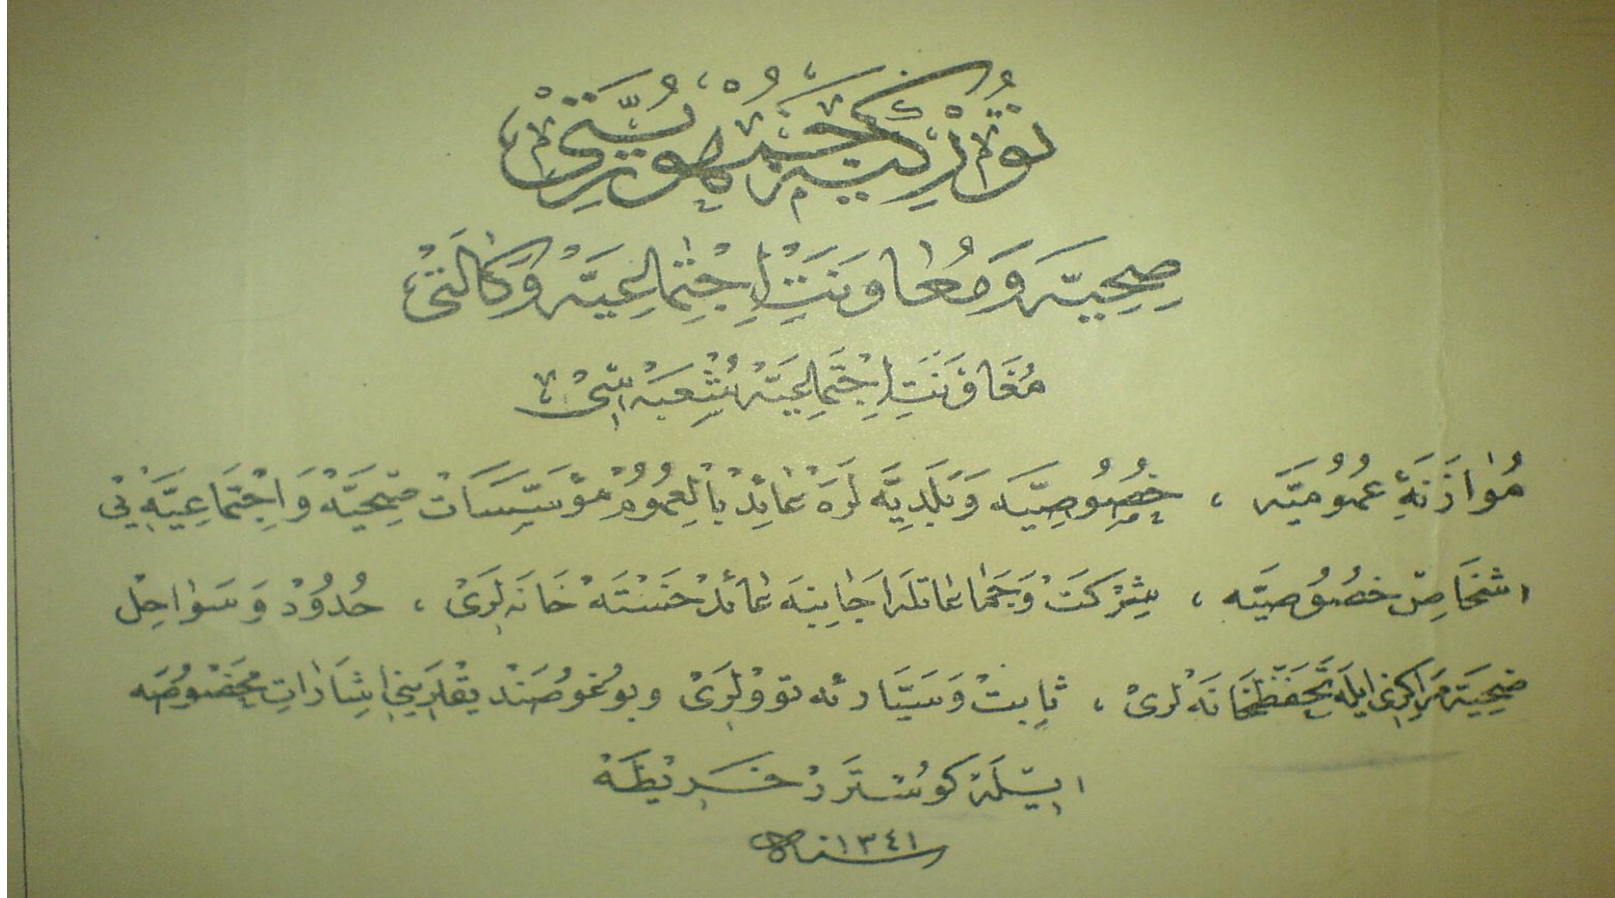 تورکیه جمهوریتی
صحیه و معاونت اجتماعیه وکالتی
معاونت اجتماعیه شعبه سی
موازنهٔ عمومیه ، خصوصیه و بلدیه لره عائد بالعموم مؤسسات صحیه و اجتماعیه نی
اشخاص خصوصیه ، شرکت و جماعاتله اجانبه عائد خسته خانه لری ، حدود و سواحل
صحیه مراکزی ایله تحفظخانه لری ، ثابت و سیاره اتوولری و بوغوصندیقلرینی اشارات مخصوصه
ایله کوستر خریطه
سنه ١٣٤١